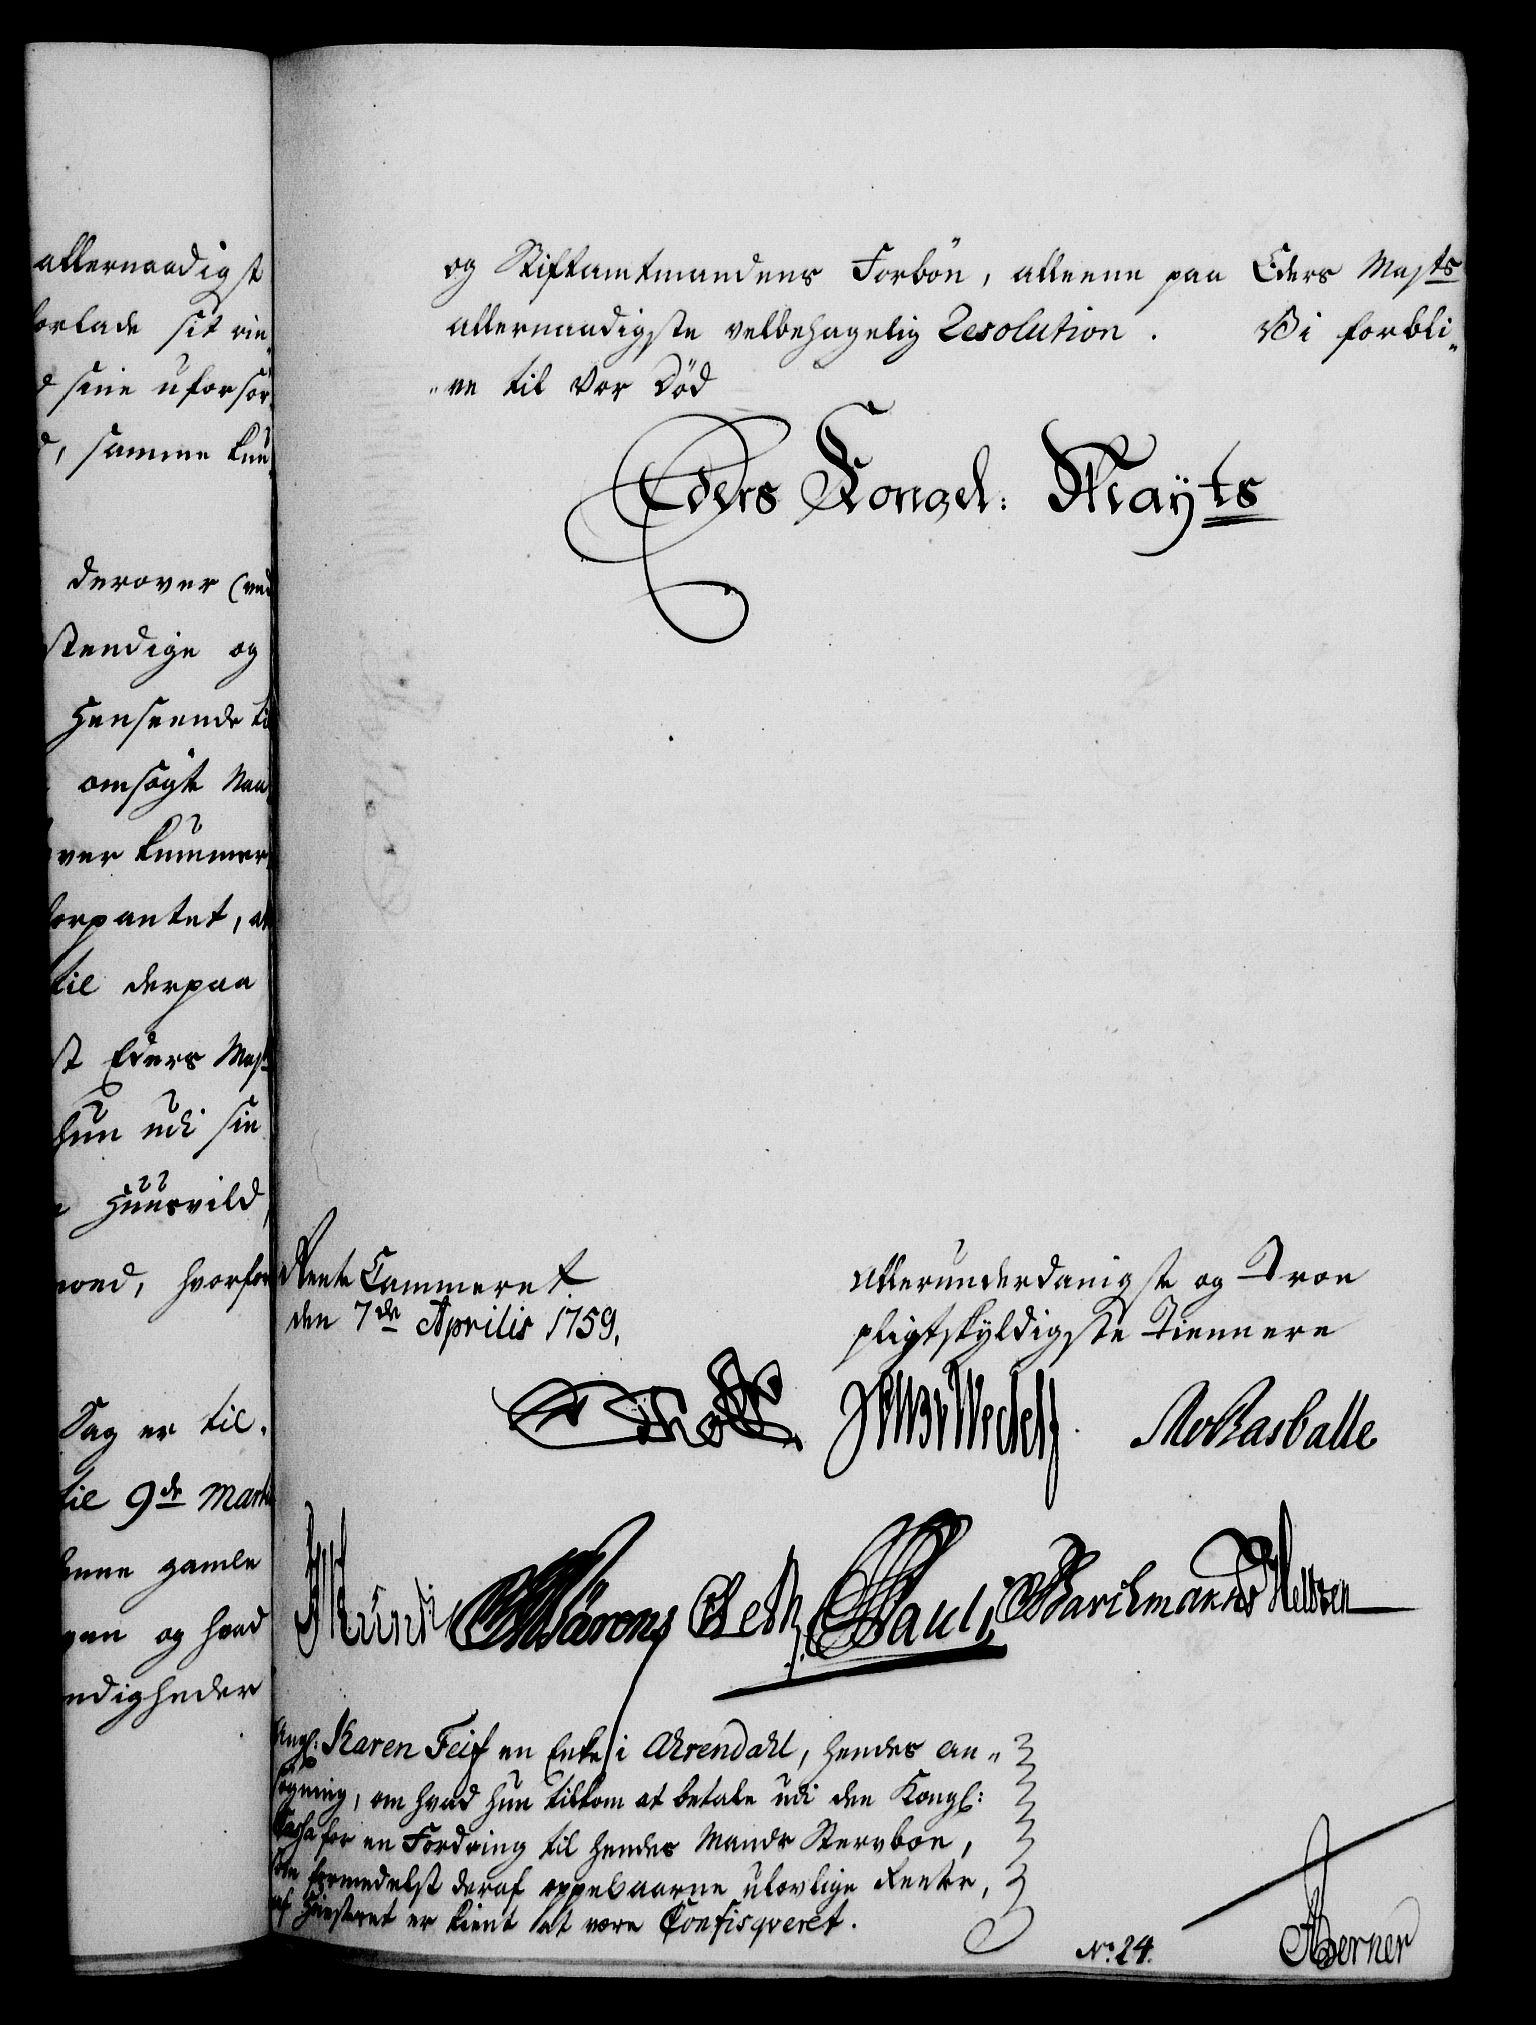 allernaadigst
forlade sit vin„
d sine uforsør„
d, samme kun„
derover (ved
stendige og
Henseende til
omsøgte Naa„
ver kummer„
forpantet, at
til derpaa
st Eders Mayts
hun udi sin
Huusvild,
noed, hvorfor
Sag er til„
til 9de Martii
denne gamle
og hvad
ndigheder
og Stiftamtmandens Forbøn, alleene paa Eders Mayts
allernaadigste velbehagelig Resolution. Vi forbli„
„ve til Vor Død
Eders Kongel: Mayts
Rente Cammeret
den 7de Aprilis 1759.
allerunderdanigste og Troe
pligtskyldigste Tiennere
Thott Wedell Rasballe
Pauli Barchmann
Angl: Karen Feif en Enke i Ahrendahl, hendes an„
søgning, om hvad hun tilkom at betale udi den Kongl:
Cassa for en Fordring til hendes Mands Stervboe,
som formedelst deraf oppebaarne ulovlige Rente,
af Høysteret er kient at være Confisqveret.
No. 24.
Berner